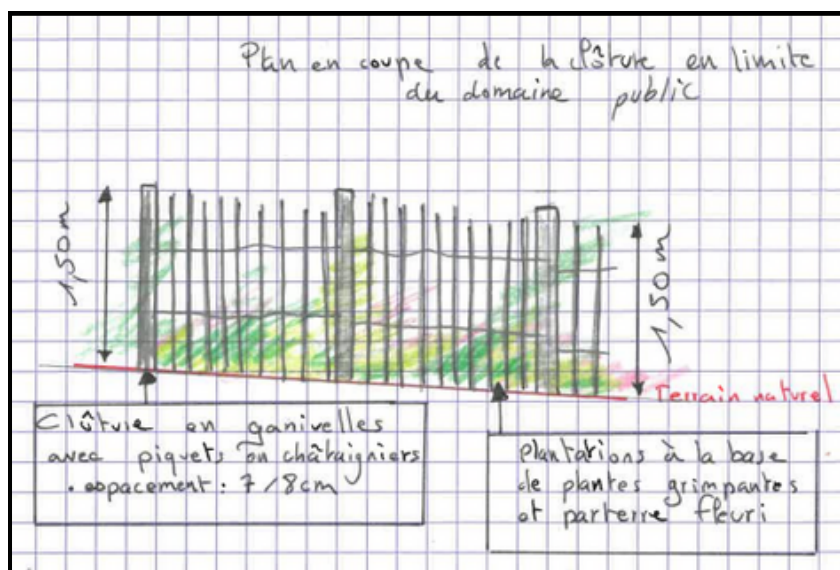 Plan en coupe de la clôture en limite
du domaine public
1,50m
1,50 m
Terrain naturel
Clôture en ganivelles
avec piquets en châtaigniers
. espacement : 7/8cm
plantations à la base
de plantes grimpantes
et parterre fleuri